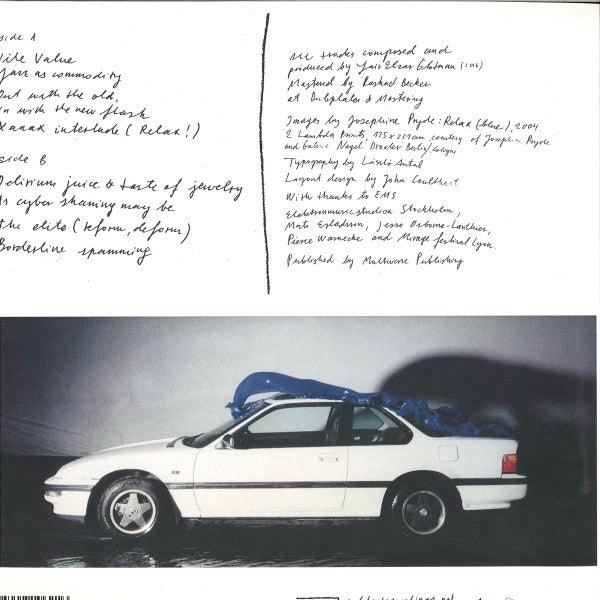 side A
Vile Value
as commodity
Out with the old,
in with the new flash
Xanax interlude (Relax!)
side B
Delirium juice & taste of jewelry
As cyber shaming may be
the elite (reform, deform)
Borderline spamming
All tracks composed and
produced by Yair Elazar Glotman (2016)
Mastered by Rashad Becker
at Dubplates & Mastering
Images by Josephine Pryde: Relax (blue), 2004
2 Lambda Prints, courtesy of Josephine Pryde
and Galerie Nagel Draxler Berlin/Cologne
Typography by László Antal
Layout design by John
With thanks to EMS
Elektronmusicstudion Stockholm,
Mats Erlandsson, Jesse Osborne-Lanthier,
Pierre Warnecke and Mirage festival Lyon.
Published by Multiverse Publishing